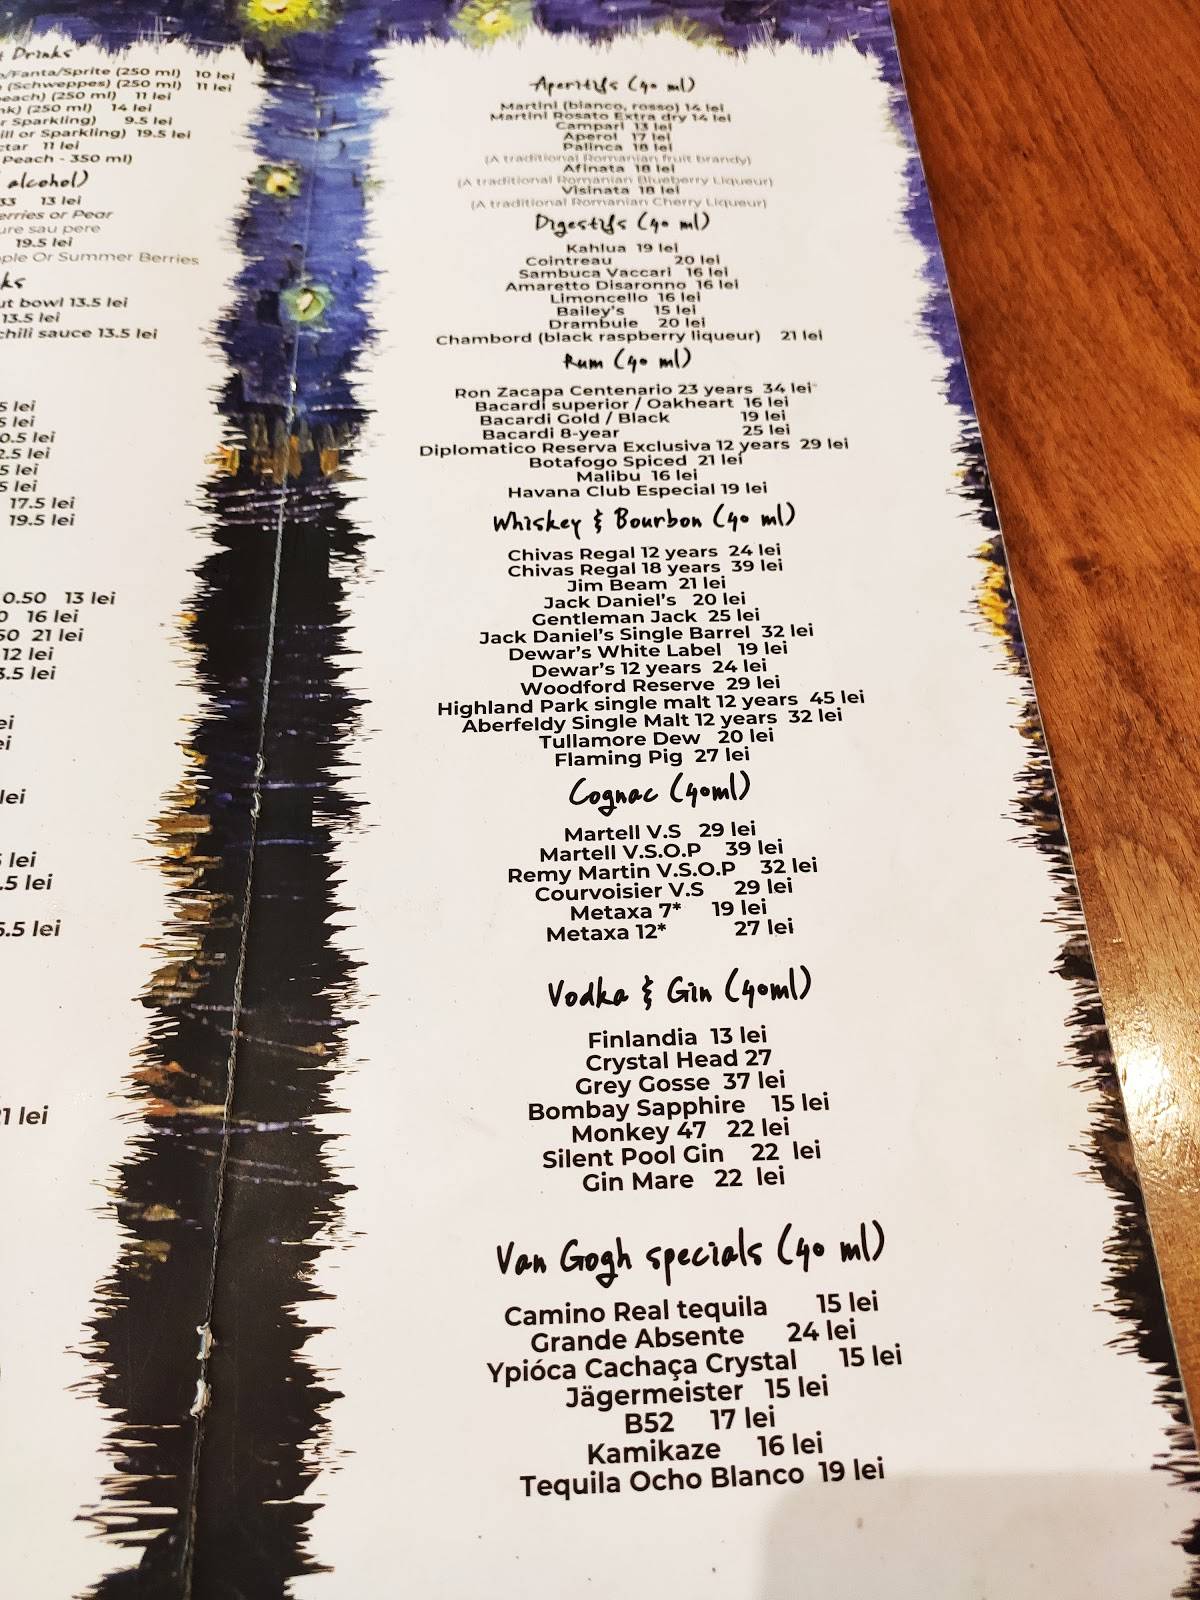 Drinks
/Fanta/Sprite (250 ml) 10 lei
(Schweppes) (250 ml) 11 lei
(250 ml) 11 lei
(250 ml) 14 lei
Sparkling) 9.5 lei
or Sparkling) 19.5 lei
11 lei
Peach - 350 ml)
alcohol)
13 lei
or Pear
sau pere
19.5 lei
Or Summer Berries
bowl 13.5 lei
13.5 lei
chili sauce 13.5 lei
lei
lei
0.5 lei
2.5 lei
5 lei
5 lei
17.5 lei
19.5 lei
0.50 13 lei
16 lei
21 lei
12 lei
3.5 lei
lei
lei
.5 lei
5.5 lei
1 lei
Aperitifs (40 ml)
Martini (bianco, rosso) 14 lei
Martini Rosato Extra dry 14 lei
Campari 13 lei
Aperol 17 lei
Palinca 18 lei
(A traditional Romanian fruit brandy)
Afinata 18 lei
(A traditional Romanian Blueberry Liqueur)
Visinata 18 lei
(A traditional Romanian Cherry Liqueur)
Digestifs (40 ml)
Kahlua 19 lei
Cointreau 20 lei
Sambuca Vaccari 16 lei
Amaretto Disaronno 16 lei
Limoncello 16 lei
Bailey's 15 lei
Drambuie 20 lei
Chambord (black raspberry liqueur) 21 lei
Rum (40 ml)
Ron Zacapa Centenario 23 years 34 lei
Bacardi superior / Oakheart 16 lei
Bacardi Gold / Black 19 lei
Bacardi 8-year 25 lei
Diplomatico Reserva Exclusiva 12 years 29 lei
Botafogo Spiced 21 lei
Malibu 16 lei
Havana Club Especial 19 lei
Whiskey & Bourbon (40 ml)
Chivas Regal 12 years 24 lei
Chivas Regal 18 years 39 lei
Jim Beam 21 lei
Jack Daniel's 20 lei
Gentleman Jack 25 lei
Jack Daniel's Single Barrel 32 lei
Dewar's White Label 19 lei
Dewar's 12 years 24 lei
Woodford Reserve 29 lei
Highland Park single malt 12 years 45 lei
Aberfeldy Single Malt 12 years 32 lei
Tullamore Dew 20 lei
Flaming Pig 27 lei
Cognac (40ml)
Martell V.S 29 lei
Martell V.S.O.P 39 lei
Remy Martin V.S.O.P 32 lei
Courvoisier V.S 29 lei
Metaxa 7* 19 lei
Metaxa 12* 27 lei
Vodka & Gin (40ml)
Finlandia 13 lei
Crystal Head 27
Grey Gosse 37 lei
Bombay Sapphire 15 lei
Monkey 47 22 lei
Silent Pool Gin 22 lei
Gin Mare 22 lei
Van Gogh specials (40 ml)
Camino Real tequila 15 lei
Grande Absente 24 lei
Ypióca Cachaça Crystal 15 lei
Jägermeister 15 lei
B52 17 lei
Kamikaze 16 lei
Tequila Ocho Blanco 19 lei